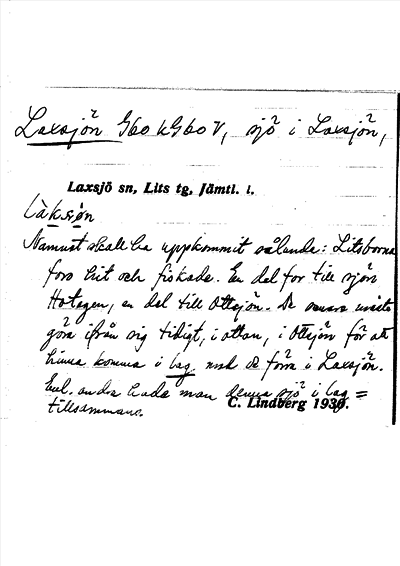 Laxsjön 960 k 960 V, sjö i Laxsjön,
Laxsjö sn, Lits tg, Jämtl. l.
Làksjøn
Namnet skall ha uppkommit sålunda: Litsborna
foro hit och fiskade. En del for till sjön
Hotagen, en del till Ottsjön. De
göra ifrån sig tidigt, i ottan, i Ottsjön för att
hinna komma i lag med de förra i Laxsjön.
Enl. andra hade man denna sjö i lag =
tillsammans.
C. Lindberg 1939.